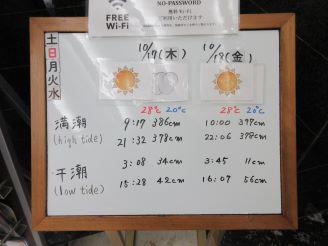 NO-PASSWORD
FREE
Wi-Fi
無料Wi-Fi
ご利用いただけます
土
日
月
火
水
10/17(木)
10/18(金)
28℃ 20℃
28℃ 20℃
満潮
(high tide)
9:17 386cm
10:00 397cm
21:32 378cm
22:06 378cm
干潮
(low tide)
3:08 34cm
3:45 11cm
15:28 42cm
16:07 56cm